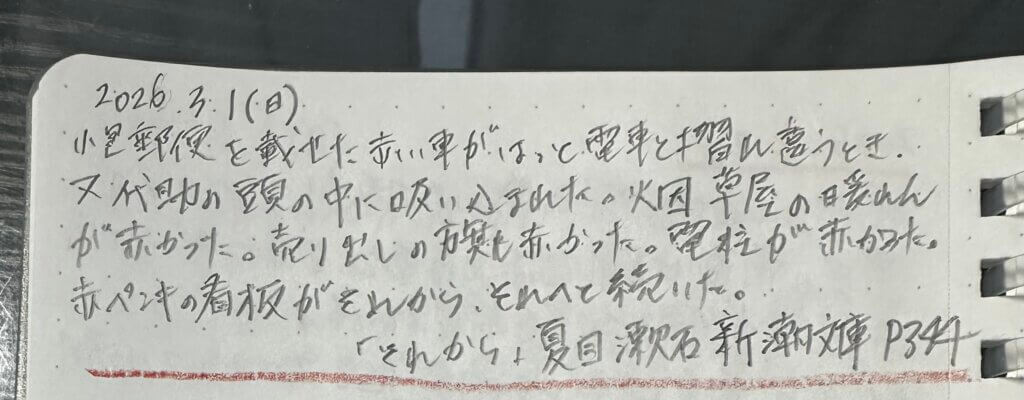 2026.3.1(日)
小包郵便を載せた赤い車がはっと電車と摺れ違うとき、
又代助の頭の中に吸い込まれた。烟草屋の暖れん
が赤かった。売り出しの旗も赤かった。電柱が赤かった。
赤ペンキの看板がそれから、それへと続いた。
「それから」夏目漱石 新潮文庫 P344